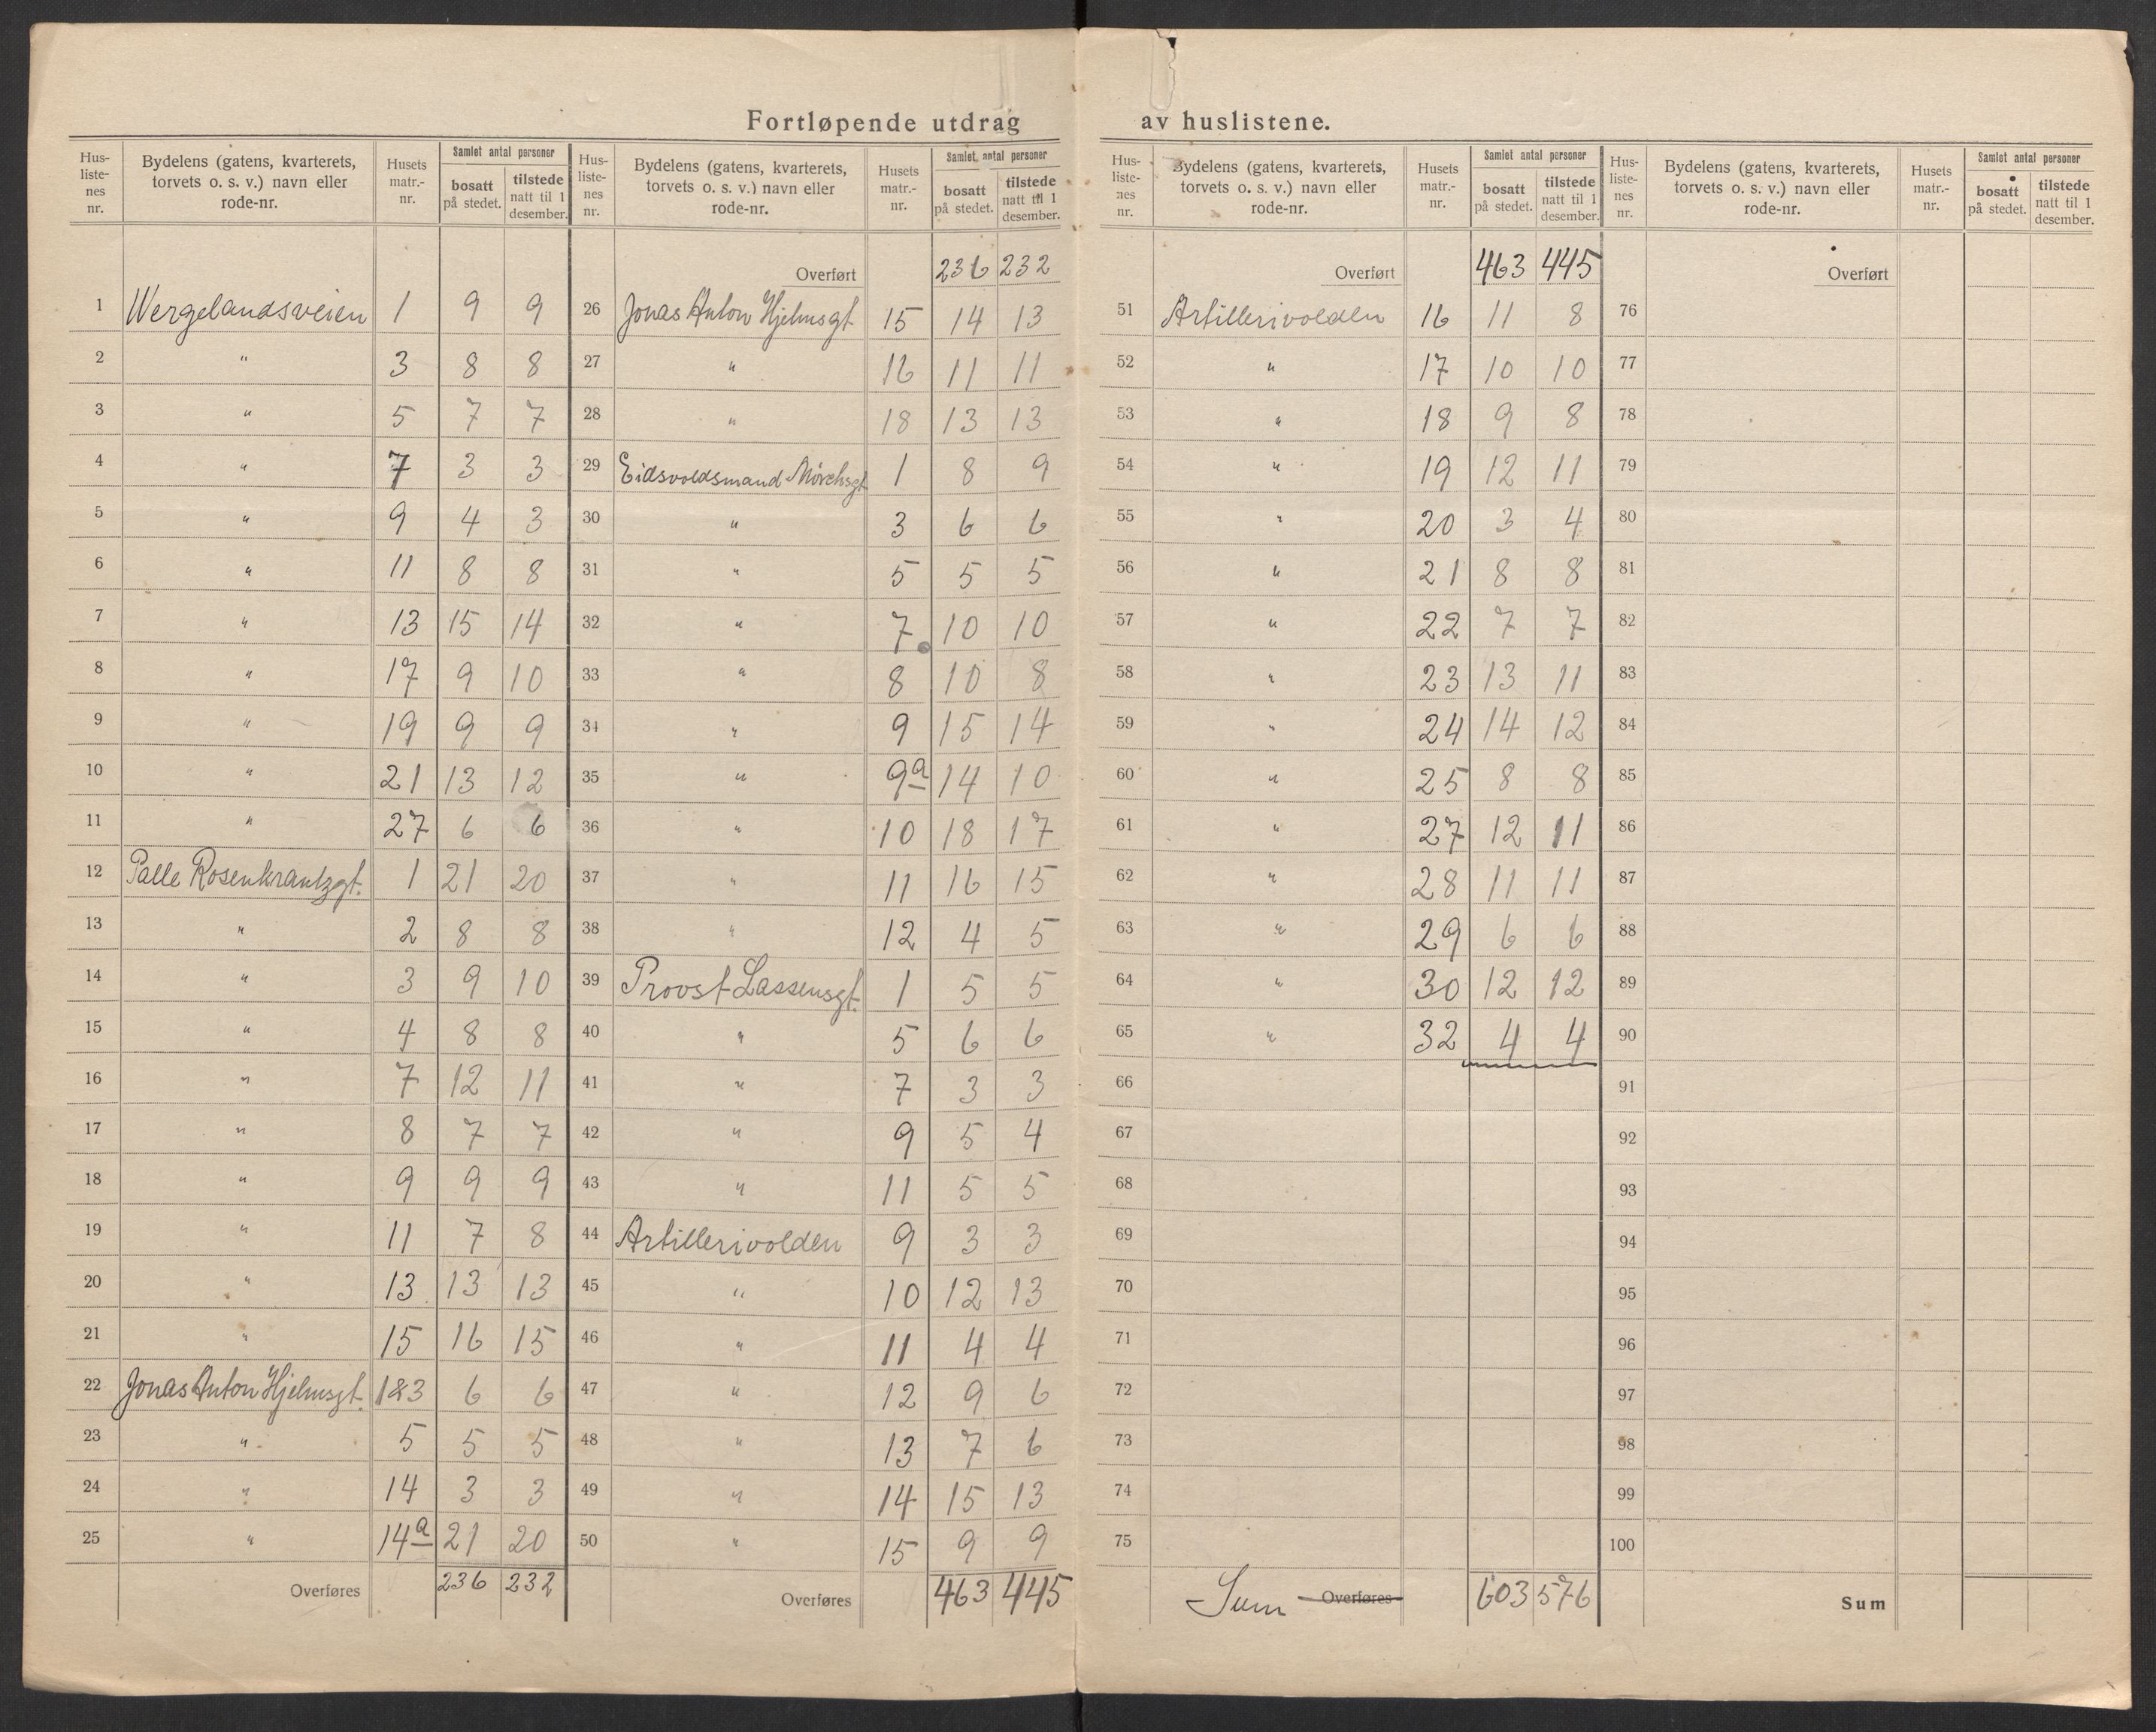 Fortløpende utdrag av huslistene.
Hus-listenes nr. Bydelens (gatens, kvarterets, torvets o. s. v.) navn eller rode-nr. Husets matr.-nr. Samlet antal personer bosatt på stedet. tilstede natt til 1 desember.
1 Wergelandsveien 1 9 9
2 " 3 8 8
3 " 5 7 7
4 " 7 3 3
5 " 9 4 3
6 " 11 8 8
7 " 13 15 14
8 " 17 9 10
9 " 19 9 9
10 " 21 13 12
11 " 27 6 6
12 Palle Rosenkrantzgt. 1 21 20
13 " 2 8 8
14 " 3 9 10
15 " 4 8 8
16 " 7 12 11
17 " 8 7 7
18 " 9 9 9
19 " 11 7 8
20 " 13 13 13
21 " 15 16 15
22 Jonas Anton Hjelmsgt. 1&3 6 6
23 " 5 5 5
24 " 14 3 3
25 " 14a 21 20
Overføres 236 232
Hus-listenes nr. Bydelens (gatens, kvarterets, torvets o. s. v.) navn eller rode-nr. Husets matr.-nr. Samlet antal personer bosatt på stedet. tilstede natt til 1 desember.
Overført 236 232
26 Jonas Anton Hjelmsgt 15 14 13
27 " 16 11 11
28 " 18 13 13
29 Eidsvoldsmand Mörchsgt 1 8 9
30 " 3 6 6
31 " 5 5 5
32 " 7 10 10
33 " 8 10 8
34 " 9 15 14
35 " 9a 14 10
36 " 10 18 17
37 " 11 16 15
38 " 12 4 5
39 Provst Lassensgt. 1 5 5
40 " 5 6 6
41 " 7 3 3
42 " 9 5 4
43 " 11 5 5
44 Artillerivolden 9 3 3
45 " 10 12 13
46 " 11 4 4
47 " 12 9 6
48 " 13 7 6
49 " 14 15 13
50 " 15 9 9
Overføres 463 445
Hus-listenes nr. Bydelens (gatens, kvarterets, torvets o. s. v.) navn eller rode-nr. Husets matr.-nr. Samlet antal personer bosatt på stedet. tilstede natt til 1 desember.
Overført 463 445
51 Artillerivolden 16 11 8
52 " 17 10 10
53 " 18 9 8
54 " 19 12 11
55 " 20 3 4
56 " 21 8 8
57 " 22 7 7
58 " 23 13 11
59 " 24 14 12
60 " 25 8 8
61 " 27 12 11
62 " 28 11 11
63 " 29 6 6
64 " 30 12 12
65 " 32 4 4
66
67
68
69
70
71
72
73
74
75
Sum Overføres 603 576
Hus-listenes nr. Bydelens (gatens, kvarterets, torvets o. s. v.) navn eller rode-nr. Husets matr.-nr. Samlet antal personer bosatt på stedet. tilstede natt til 1 desember.
Overført
76
77
78
79
80
81
82
83
84
85
86
87
88
89
90
91
92
93
94
95
96
97
98
99
100
Sum